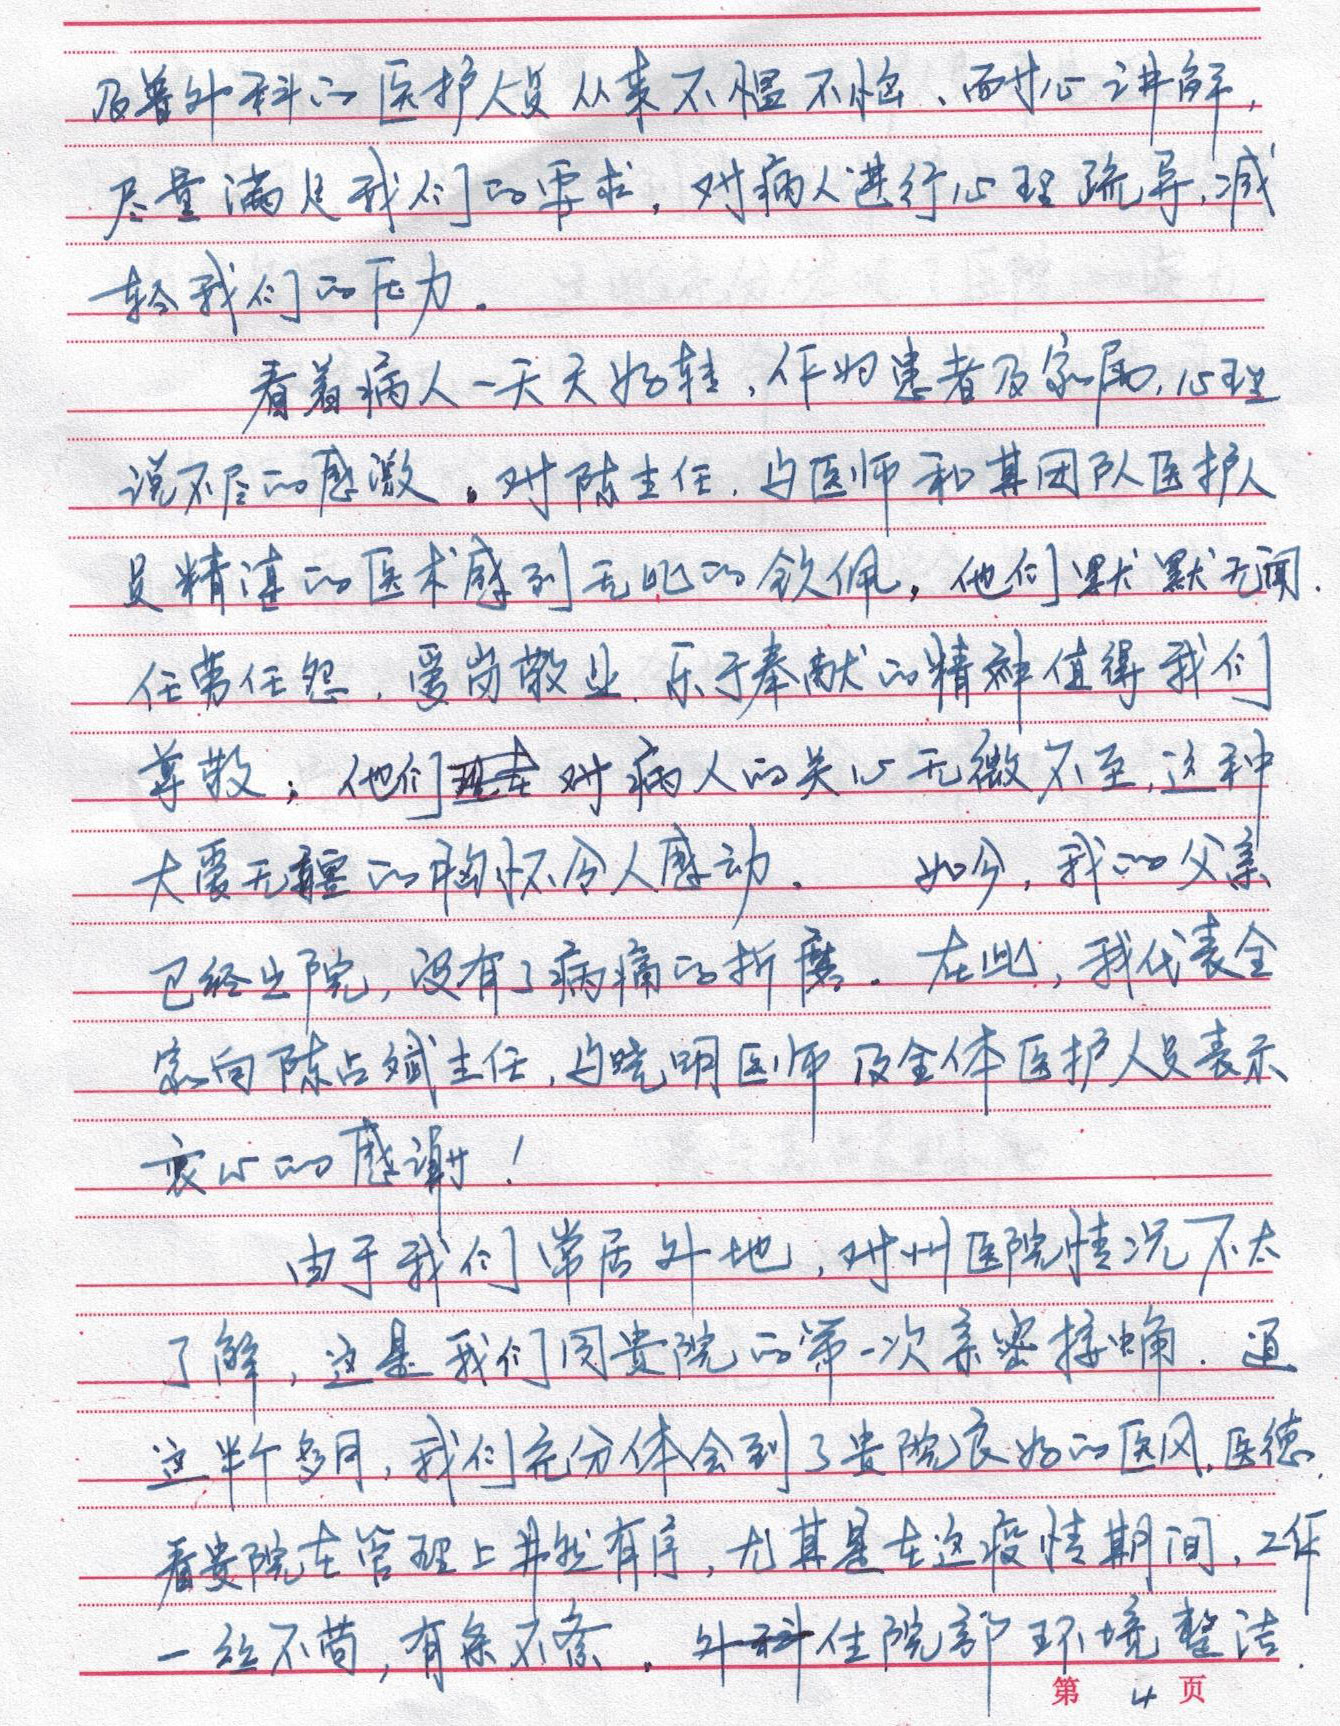 及普外科的医护人员从来不愠不恼、耐心讲解,
尽量满足我们的需求,对病人进行心理疏导,减
轻我们的压力。
看着病人一天天好转,作为患者及家属,心理
说不尽的感激。对陈主任、马医师和其团队医护人
员精湛的医术感到无比的钦佩,他们默默无闻、
任劳任怨、爱岗敬业、乐于奉献的精神值得我们
尊敬;他们对病人的关心无微不至,这种
大爱无疆的胸怀令人感动。 如今,我的父亲
已经出院,没有了病痛的折磨。在此,我代表全
家向陈占斌主任,马晓明医师及全体医护人员表示
衷心的感谢!
由于我们常居外地,对州医院情况不太
了解,这是我们同贵院的第一次亲密接触。通
这半个多月,我们充分体会到了贵院良好的医风、医德、
看贵院在管理上井然有序,尤其是在这疫情期间,工作
一丝不苟,有条不紊。外科住院部环境整洁、
第 4 页